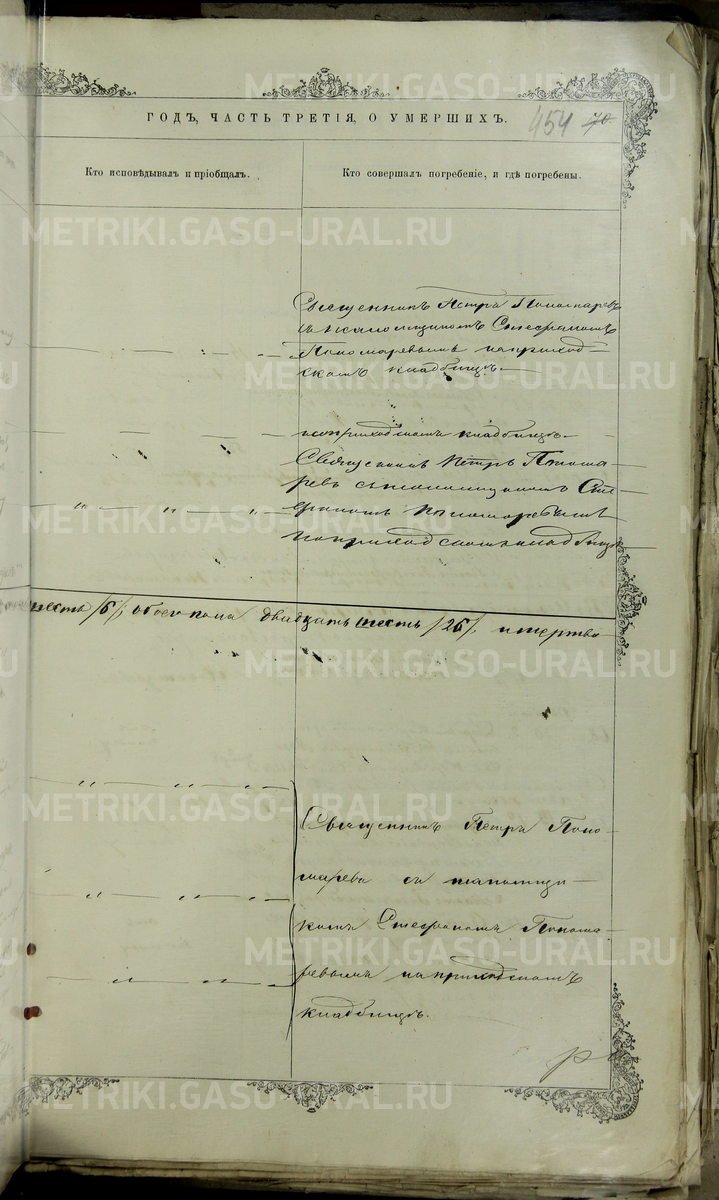 METRIKI.GASO-URAL.RU
ГОДЪ, ЧАСТЬ ТРЕТІЯ, О УМЕРШИХЪ.
454 70
Кто исповѣдывалъ и пріобщалъ.
Кто совершалъ погребеніе, и гдѣ погребены.
Священникъ Петръ Пономаревъ
съ псаломщикомъ Стефаномъ
Пономаревымъ наприход-
скомъ кладбищѣ.
наприходскомъ кладбищѣ.
Священникъ Петръ Понома-
ревъ съ псаломщикомъ Сте-
фаномъ Пономаревымъ
наприходскомъ кладбищѣ
шесть /6/, обоего пола двадцать шесть /26/, и мертво
Священникъ Петръ Поно-
маревъ съ псаломщи-
комъ Стефаномъ Понома-
ревымъ наприходскомъ
кладбищѣ.